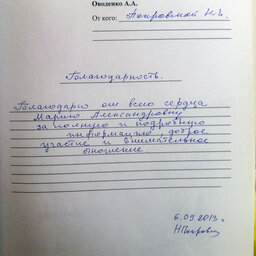 Оводенко А.А.
От кого: Покровской Н.Е.
Благодарность.
Благодарю от всего сердца
Марию Александровну
за полную и подробную
информацию, доброе
участие и внимательное
отношение.
6.09.2013 г.
НПокровск